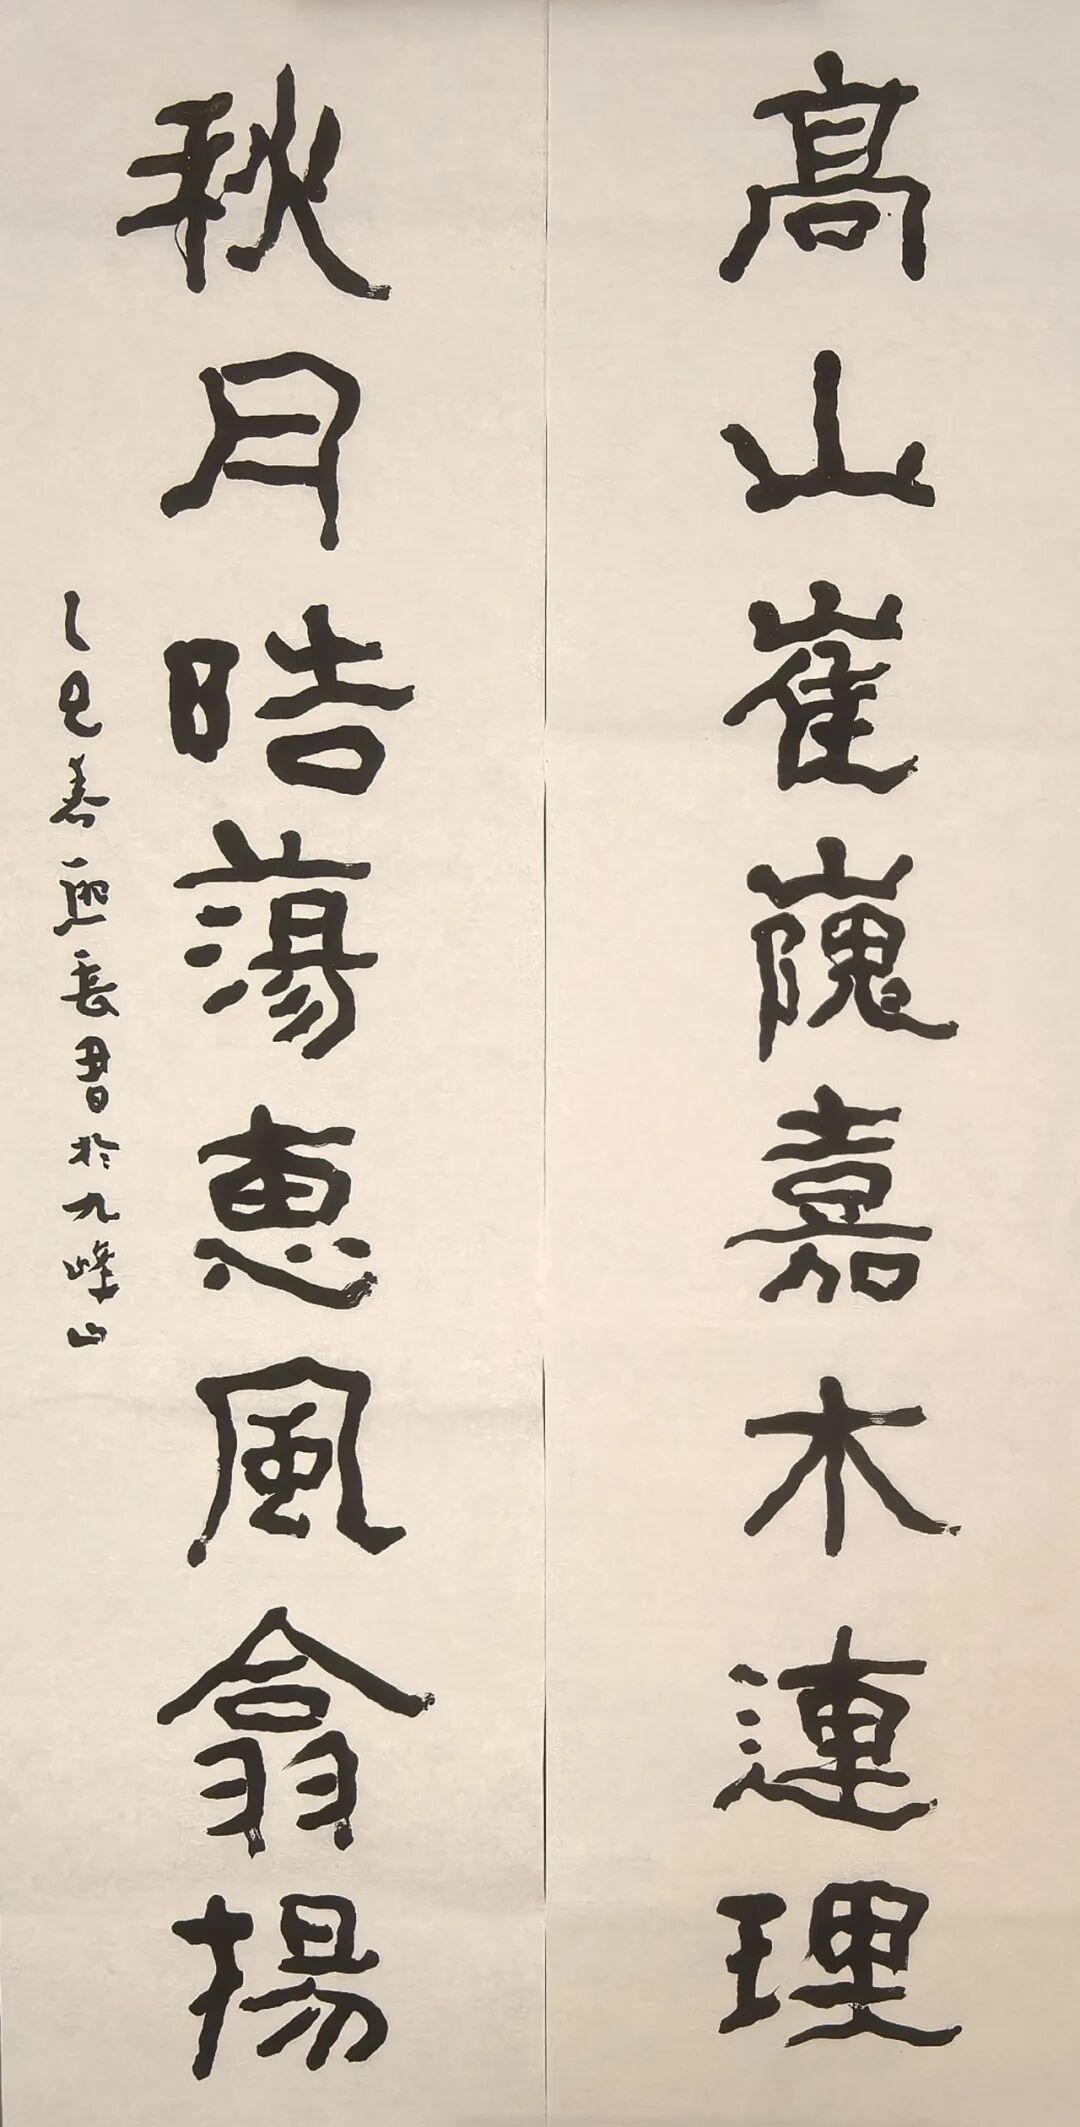 高山崔嵬嘉木連理
秋月晧蕩惠風翕揚
乙巳春 長書於九峰山